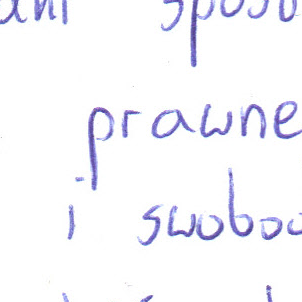 ani sposo
prawne
i swobod